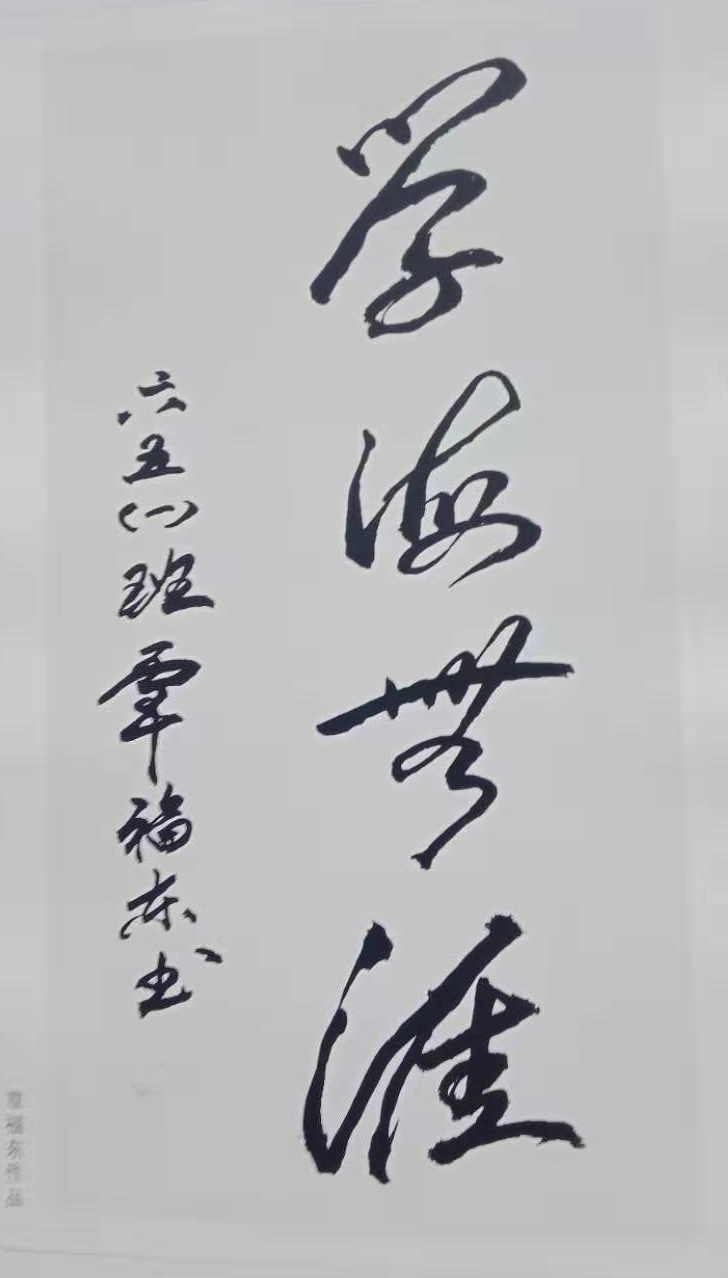 学海無涯
六五(一)班覃福东书
覃福东作品